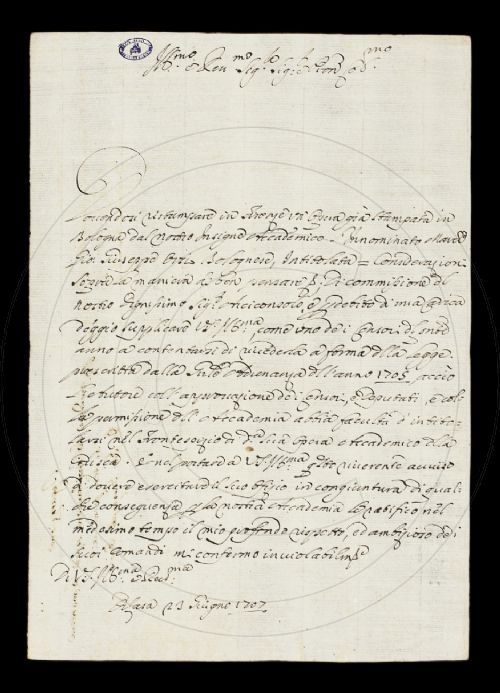 Ill.mo e Rev.mo Sig.r Sig.r e Pron. Col.mo
Dovendosi ristampare in Firenze un'Opera già stampata in
Bologna dal nostro Insigne Accademico l'Innominato March.
Gio. Giuseppe Orsi Bolognese, intitolata = Considerazioni
sopra la maniera di ben pensare &, di commissione del
nostro dignissimo Sig.r Arciconsolo, e p debito di mia carica
deggio supplicare V.S. Ill.ma come uno de i Censori di
anno a contentarsi di rivederla a forma della legge
prescritta dalla Ordinanza dell'anno 1705, acciò
l'Autore coll'approvazione dei Censori, e Deputati, e col
la permissione dell'Accademia abbia facoltà d'intito=
larsi nel Frontespizio di d.a sua Opera Accademico della
Crusca. E nel portare a V.S. Ill.ma q.sto riverente avviso
di dovere esercitare il suo Ofizio in congiuntura di qual
che conseguenza p la nostra Accademia le ratifico nel
medesimo tempo il mio profondo rispetto, ed ambizioso de i
suoi Comandi mi confermo inviolabilm.te
Di V.S. Ill.ma e Rev.ma
Di Casa 23 Giugno 1707